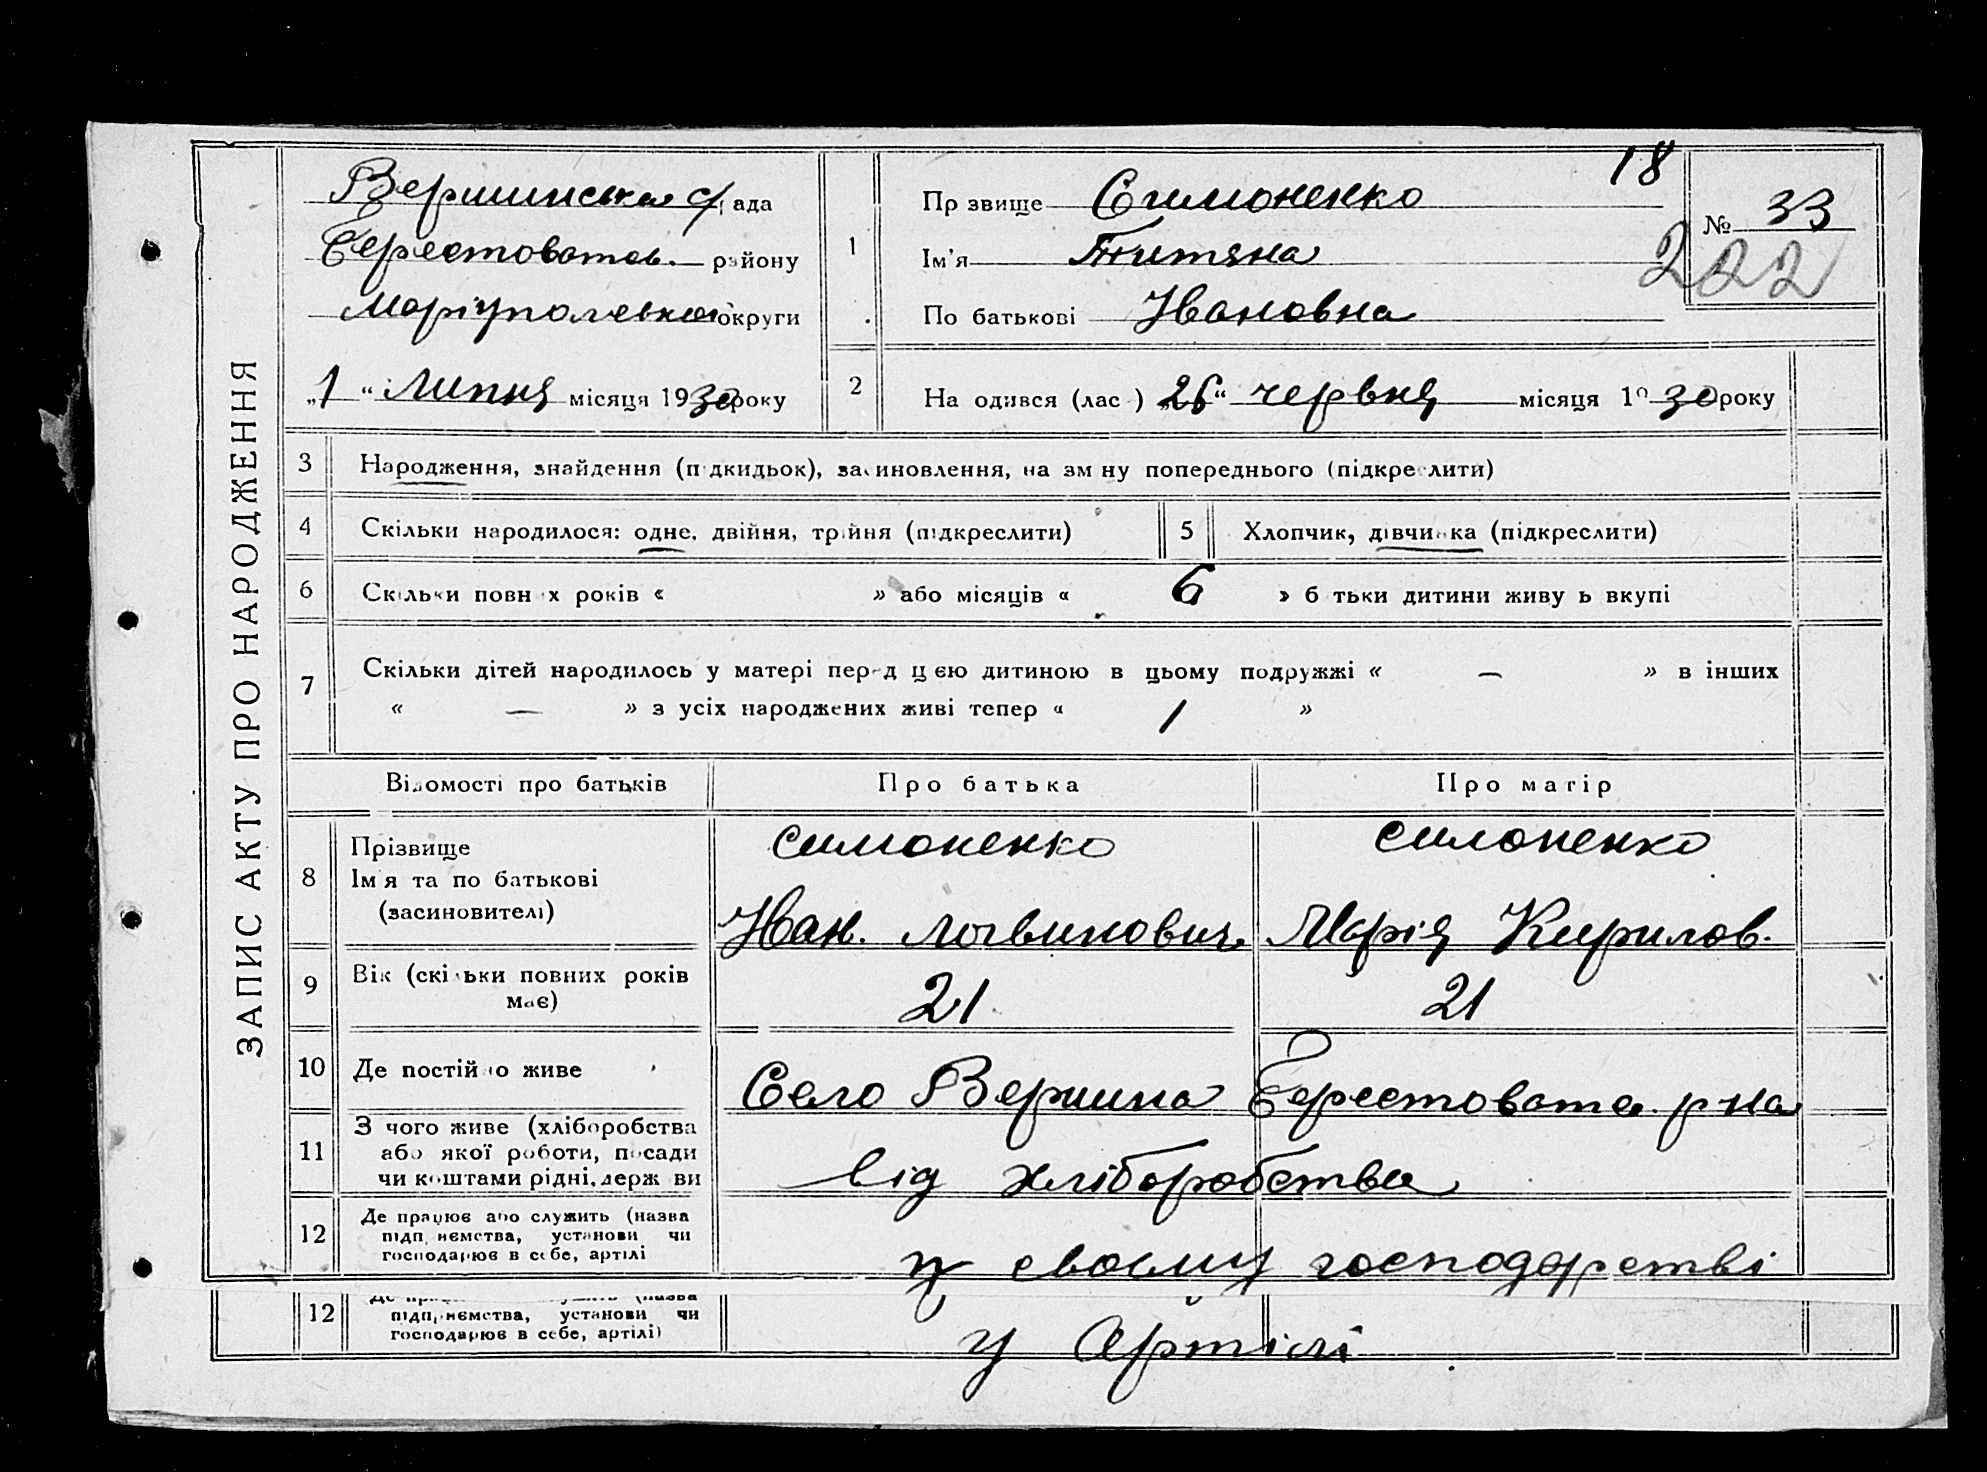 ЗАПИС АКТУ ПРО НАРОДЖЕННЯ
Вершинська с/рада
Берестоватов. району
Маріупольської округи
„1“ Липня місяця 1930 року
18
1 Прізвище Симоненко
Ім'я Титяна
По батькові Ивановна
№ 33
222
2 Народився (лась) „26“ червня місяця 1930 року
3 Народження, знайдення (підкидьок), засиновлення, на зміну попереднього (підкреслити)
4 Скільки народилося: одне, двійня, трійня (підкреслити)
5 Хлопчик, дівчинка (підкреслити)
6 Скільки повних років « » або місяців « 6 » батьки дитини живуть вкупі
7 Скільки дітей народилось у матері перед цією дитиною в цьому подружжі « — » в інших
« — » з усіх народжених живі тепер « 1 »
Відомості про батьків Про батька Про матір
8 Прізвище
Ім'я та по батькові
(засиновителі)
Симоненко Симоненко
Иван. Логвинович Марія Кирилов.
9 Вік (скільки повних років
має)
21 21
10 Де постійно живе Село Вершина Берестоватов. р-на
11 З чого живе (хліборобства
або якої роботи, посади
чи коштами рідні, держави
від хліборобства
12 Де працює або служить (назва
підприємства, установи чи
господарює в себе, артілі
у своєму господарстві
12
підприємства, установи чи
господарює в себе, артілі)
у Артілі